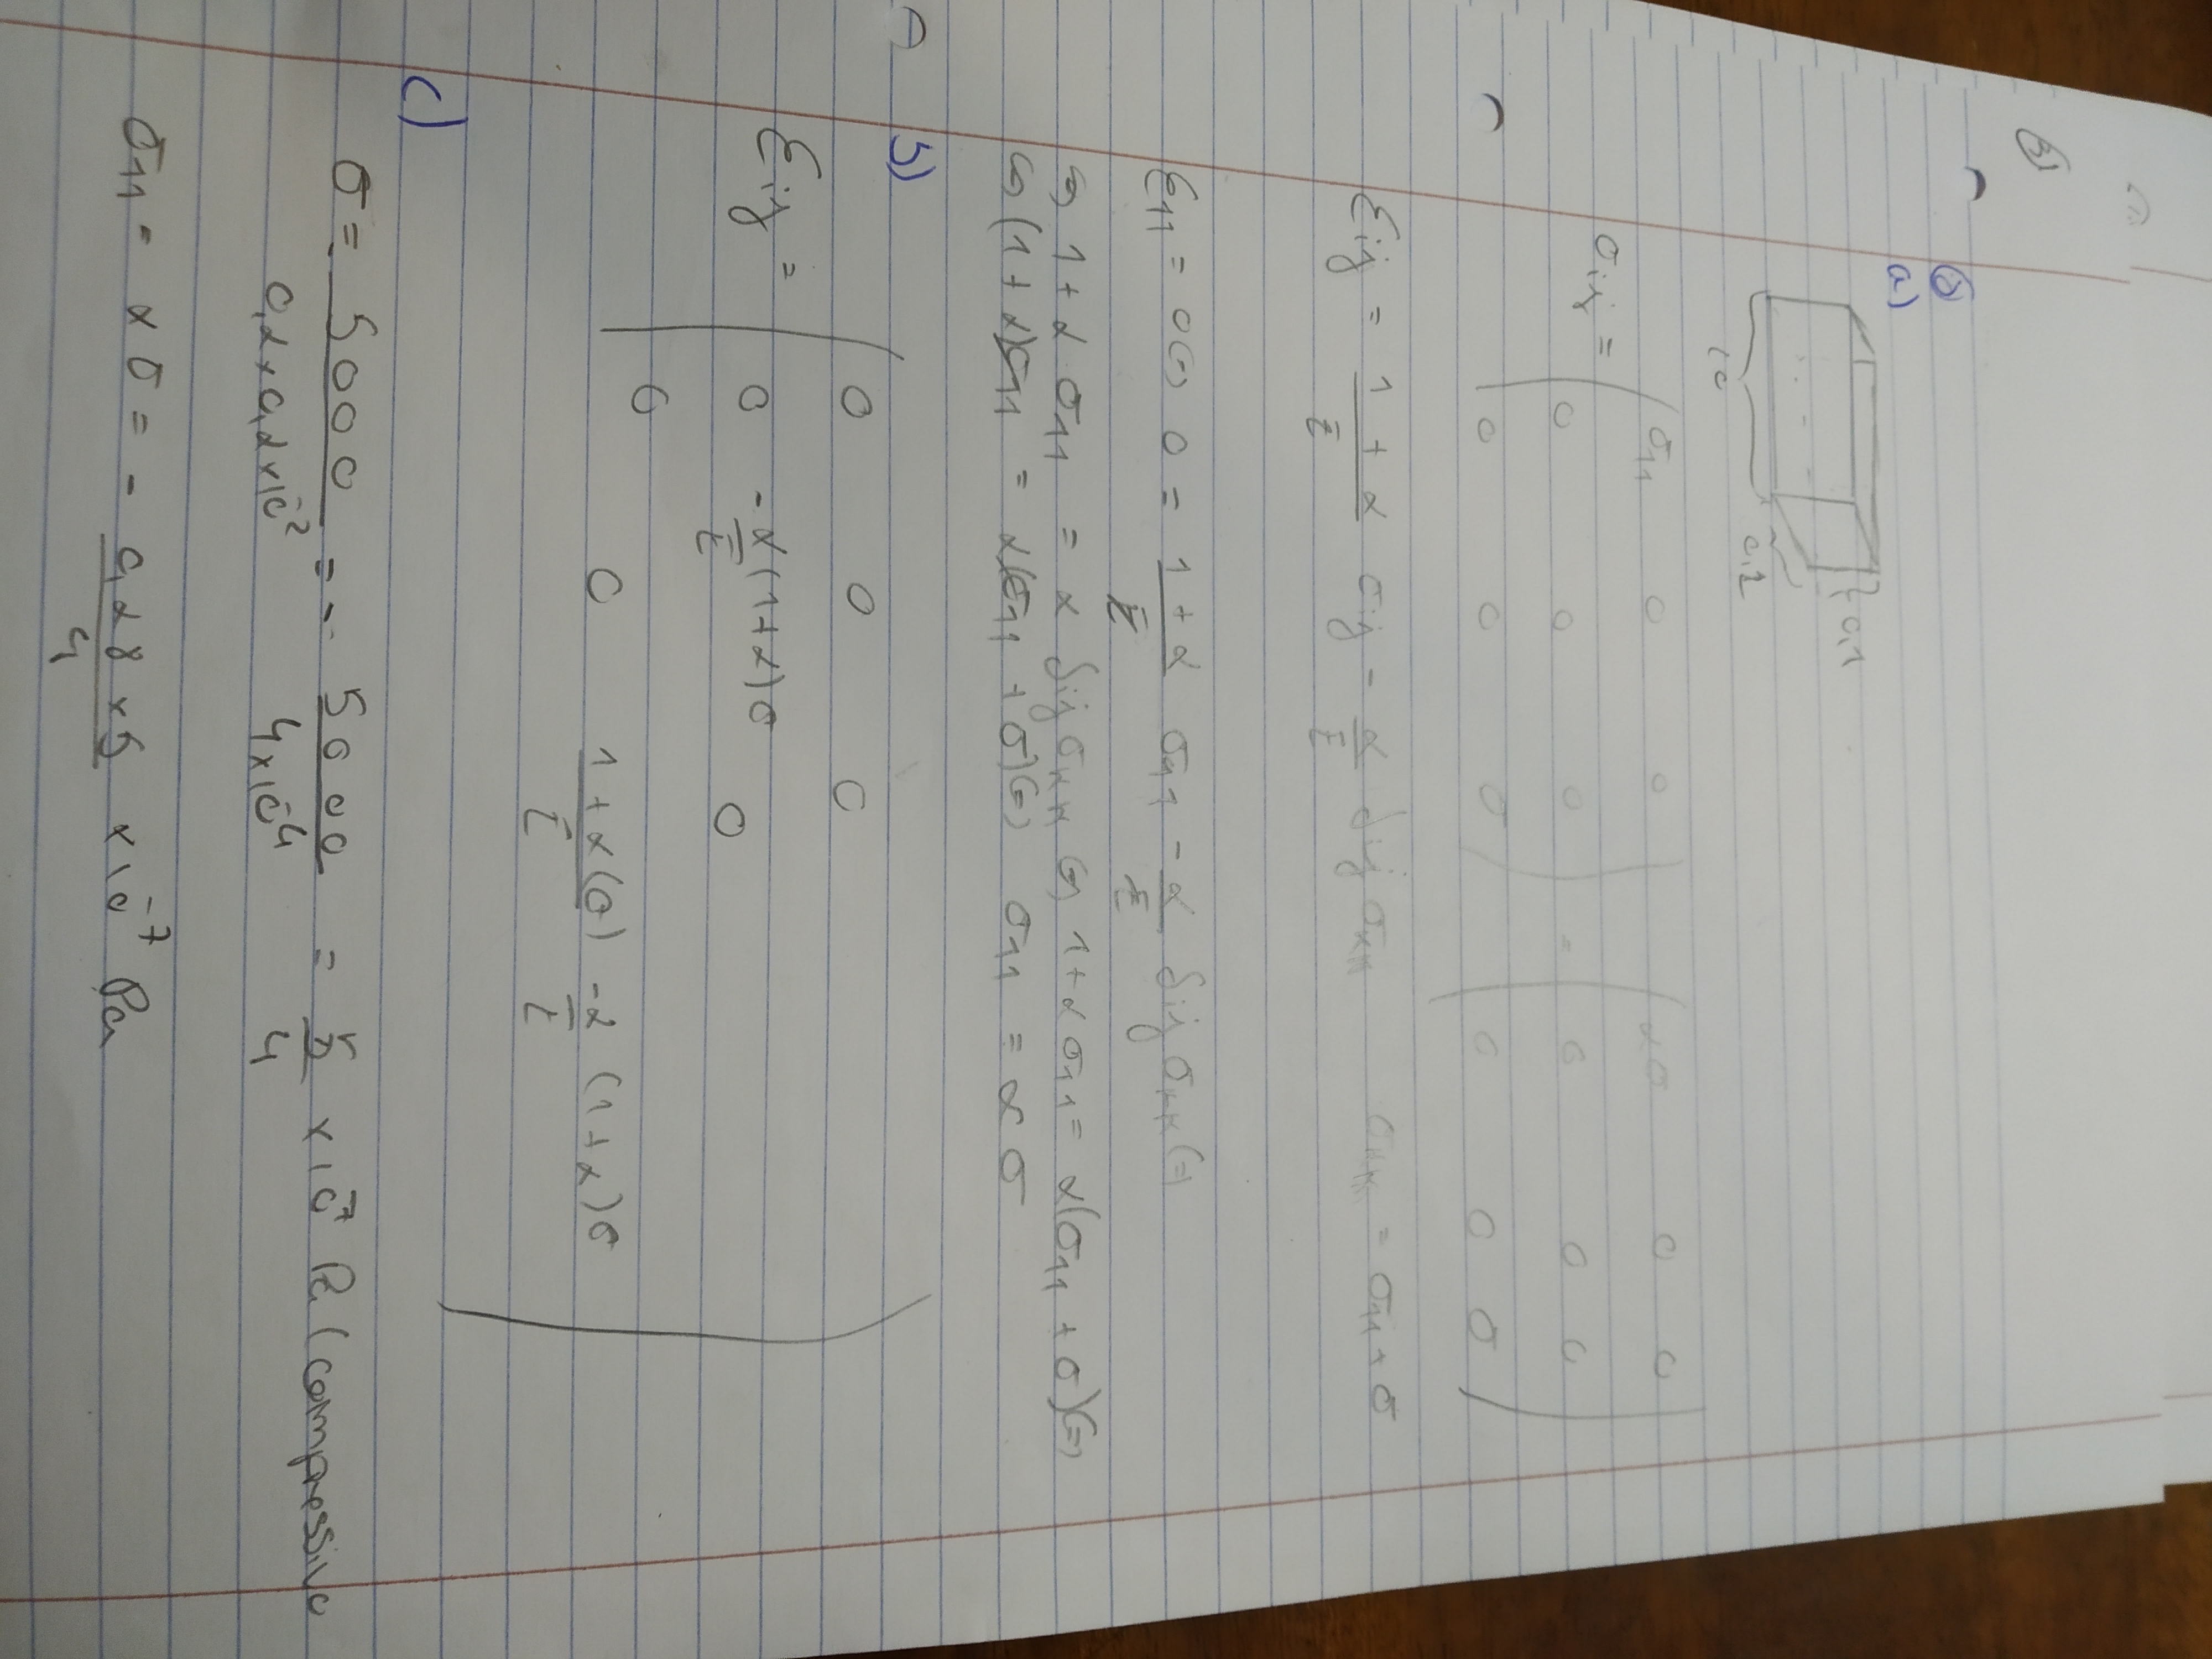 3)
a)
10
0,2
0,1
σij = ( σ11 0 0 = ( ασ 0 0
0 0 0 0 0 0
0 0 σ ) 0 0 σ )
Eij = 1+α/E σij - α/E δij σκκ σκκ = σ11 + σ
E11 = 0 (=) 0 = 1+α/E σ11 - α/E δij σκκ (=)
(=) 1+α σ11 = α δij σκκ (=) 1+α σ11 = α(σ11 + σ) (=)
(=) (1+α)σ11 = α(σ11 + σ) (=) σ11 = α σ
b)
Eij = ( 0 0 0
0 -α/E (1+α)σ 0
0 0 1+α/E (σ) - α/E (1+α)σ )
c)
σ = 5000/0,2×0,2×10² = - 5000/4×10⁴ = 5/4 ×10⁻⁷ Pa (compressive
σ11 = ασ = - 0,28×5/4 ×10⁻⁷ Pa